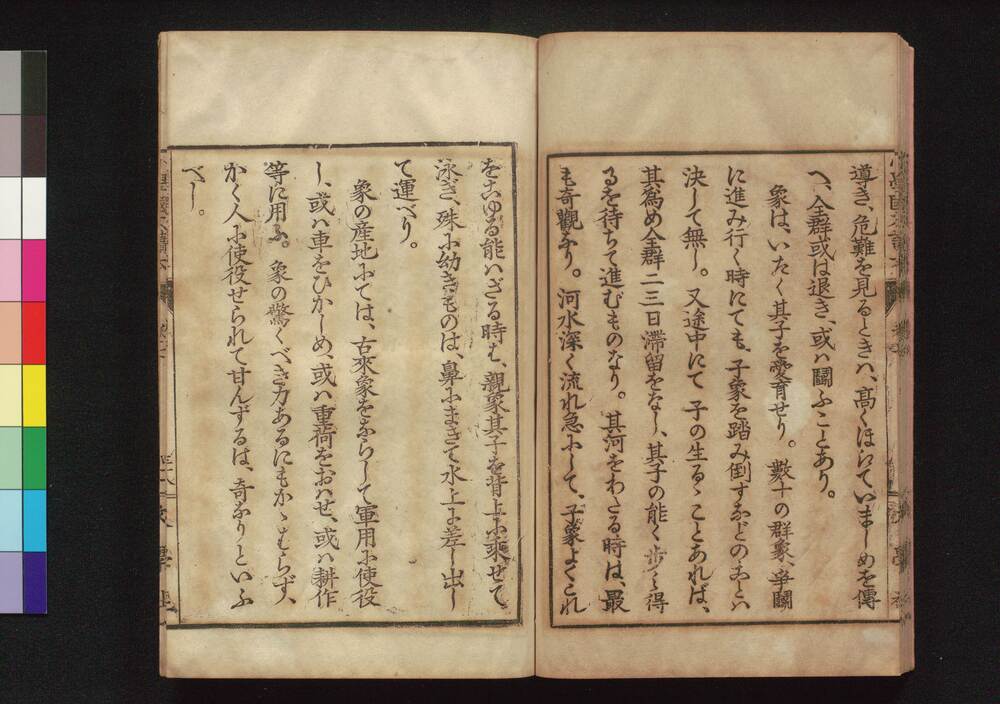 導き、危難を見るときハ、高くほえていましめを傳
へ、全群或は退き、或ハ鬪ふことあり。
象は、いたく其子を愛育せり。數十の群象、爭鬪
に進み行く時にても、子象を踏み倒すなどのことハ
決して無し。又途中にて子の生るゝことあれば、
其爲め全群二三日滯留をなし、其子の能く歩くを得
るを待ちて進むものなり。其河をわたる時は、最
も奇觀なり。河水深く流れ急にして、子象よくこれ
をこゆる能ハざる時は、親象其子を背上に乘せて
泳ぎ、殊に幼きものは、鼻にまきて水上に差し出し
て運べり。
象の産地にては、古來象をならして軍用に使役
し、或ハ車をひかしめ、或ハ重荷をおハせ、或ハ耕作
等に用ふ。象の驚くべき力あるにもかゝはらず、
かく人に使役せられて甘んずるは、奇なりといふ
べし。